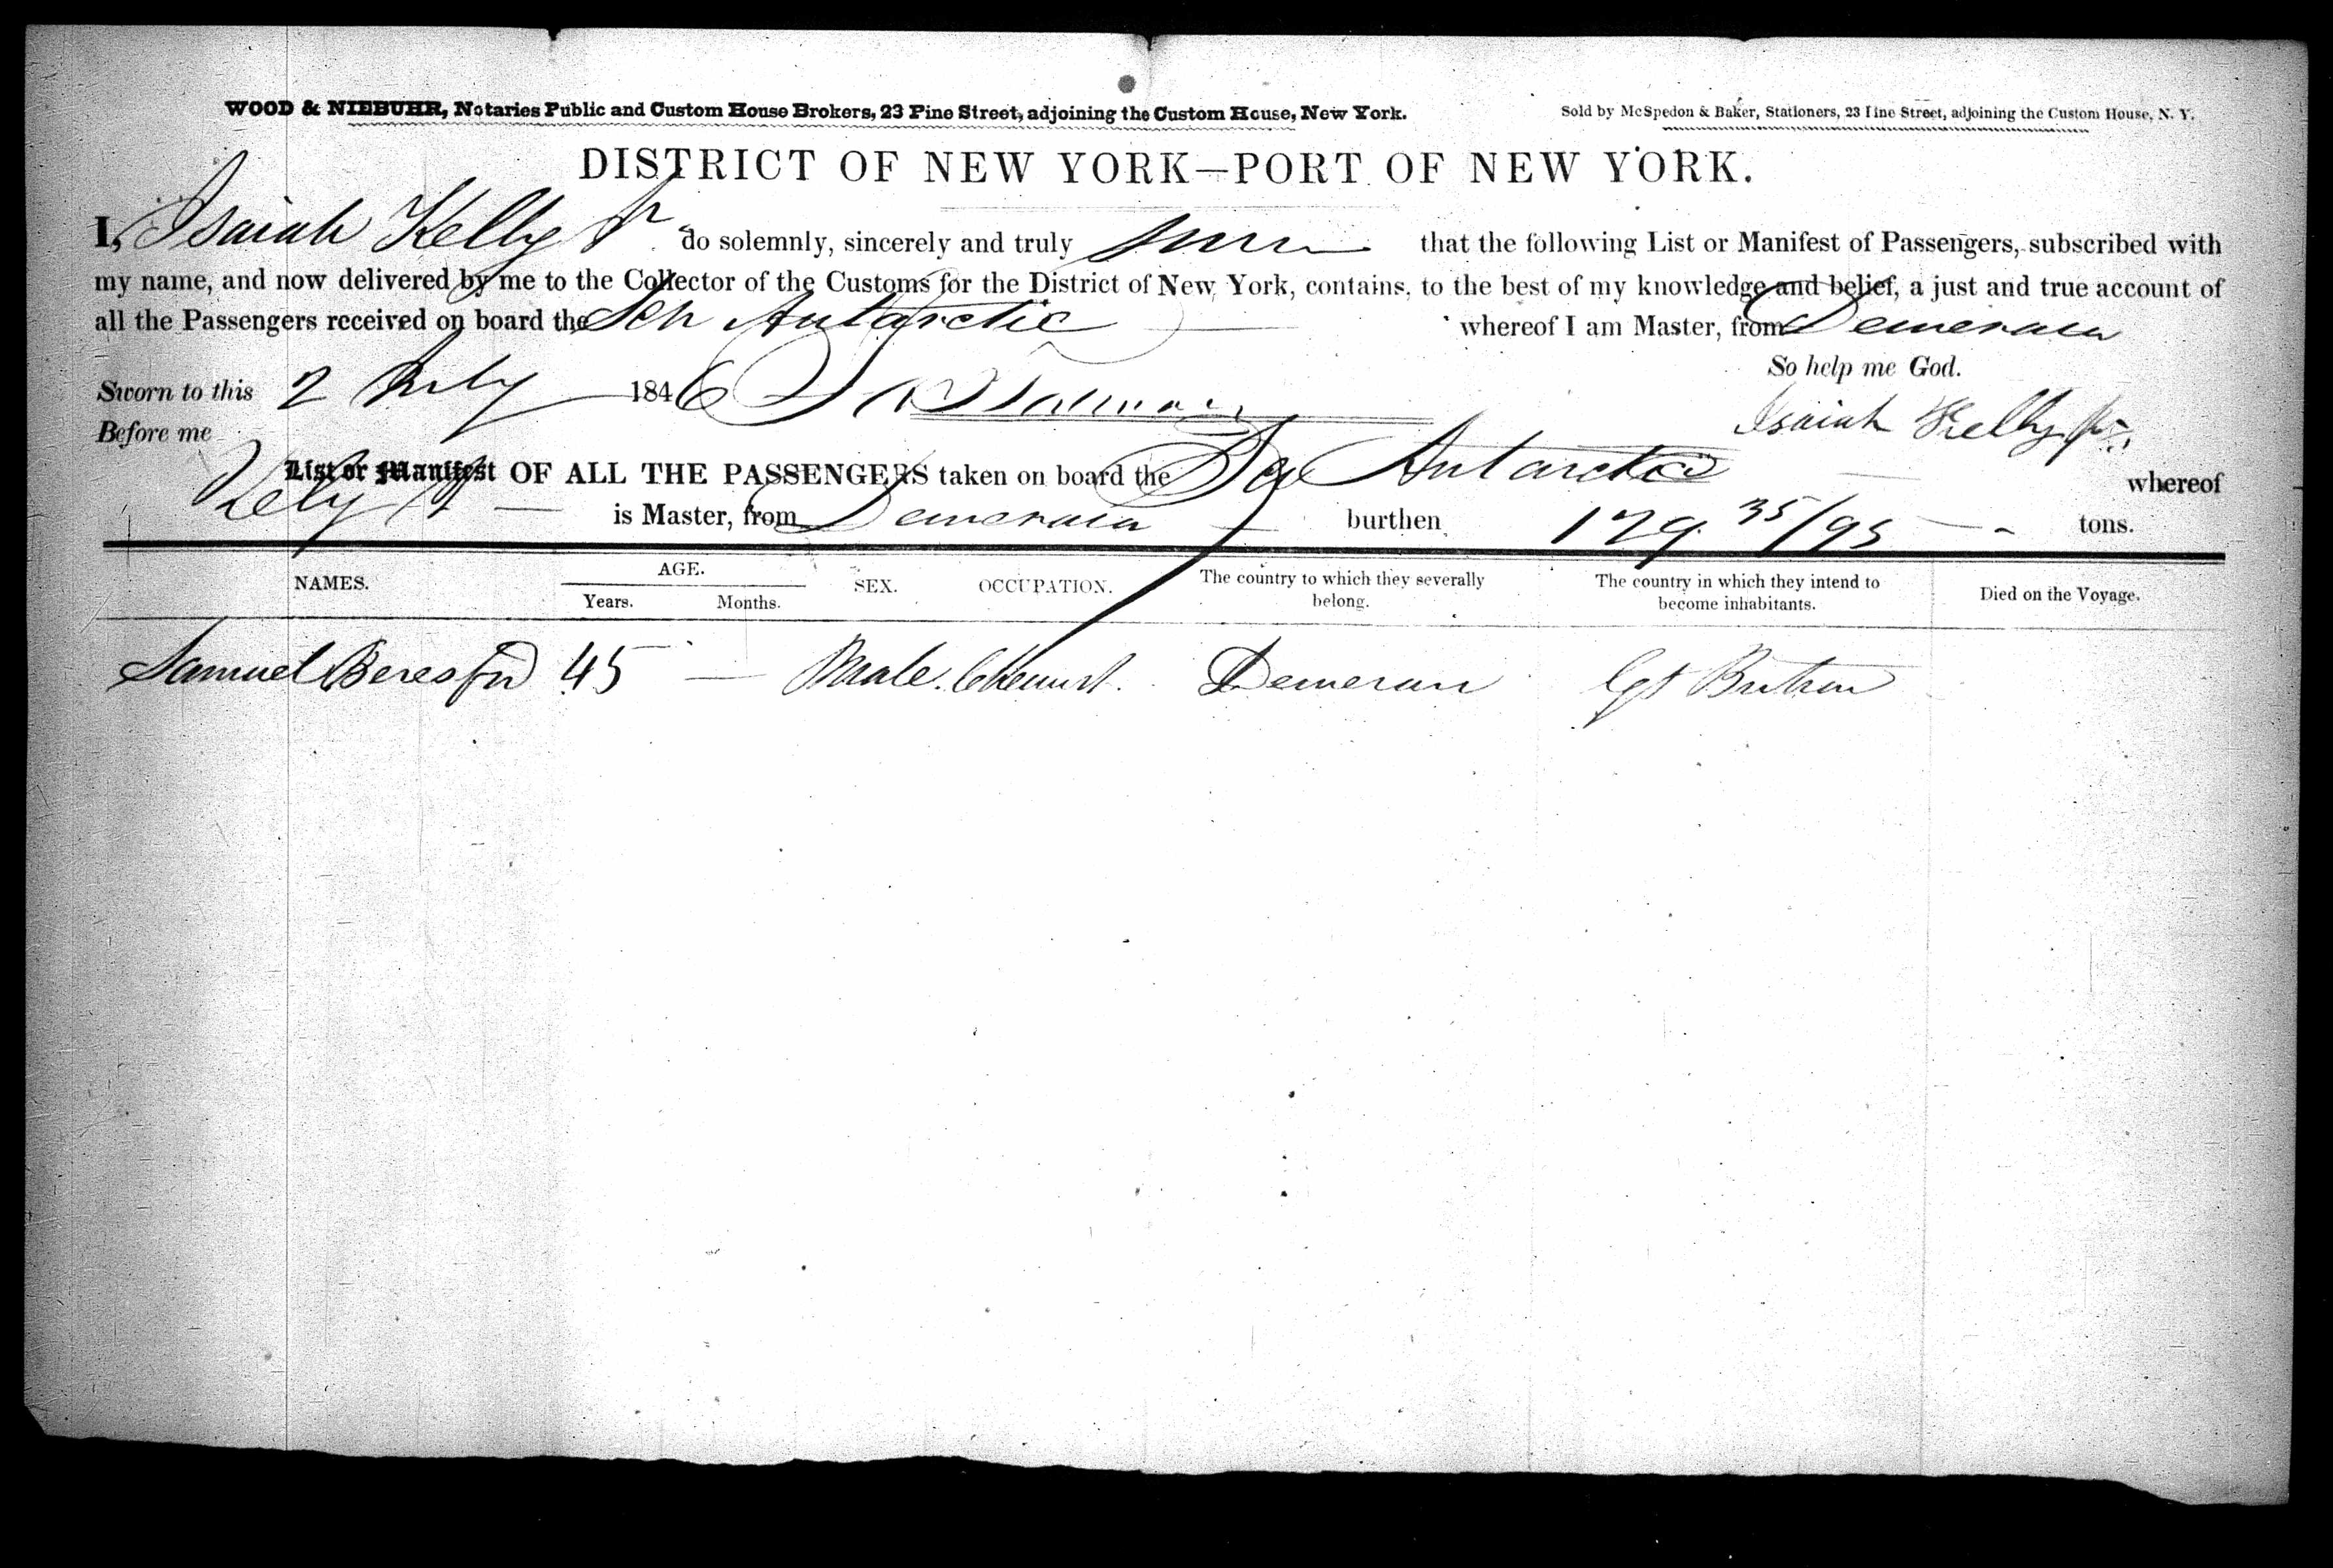 WOOD & NIEBUHR, Notaries Public and Custom House Brokers, 23 Pine Street, adjoining the Custom House, New York.
Sold by McSpedon & Baker, Stationers, 23 Pine Street, adjoining the Custom House, N. Y.
DISTRICT OF NEW YORK—PORT OF NEW YORK.
I, Isaiah Kelly Jr do solemnly, sincerely and truly swear that the following List or Manifest of Passengers, subscribed with
my name, and now delivered by me to the Collector of the Customs for the District of New York, contains, to the best of my knowledge and belief, a just and true account of
all the Passengers received on board the Sch Antarctic whereof I am Master, from Demerara
So help me God.
Sworn to this 2 July 1846
Isaiah Kelly Jr.
Before me
List or Manifest OF ALL THE PASSENGERS taken on board the Antarctic whereof
Kelly Jr is Master, from Demerara burthen 179 35/95 tons.
NAMES. AGE. Years. Months. SEX. OCCUPATION. The country to which they severally belong. The country in which they intend to become inhabitants. Died on the Voyage.
Samuel Beresford 45 — Male. Chemist. Demerara Gt Britain